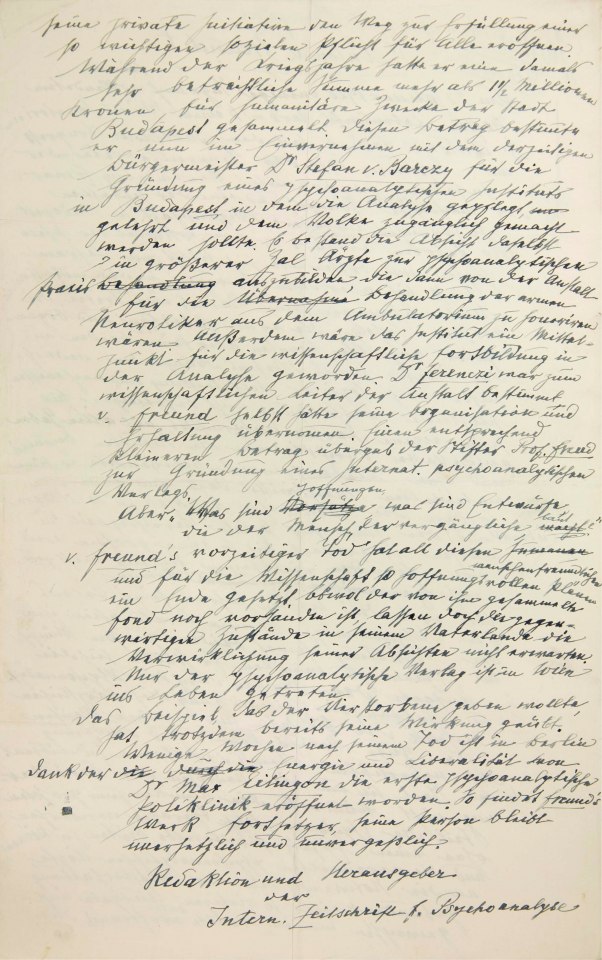 seine private Initiative den Weg zur Erfüllung einer
so wichtigen sozialen Pflicht für Alle eröffnen.
Während der Kriegsjahre hatte er eine damals
sehr beträchtliche Summe mehr als 1½ Millionen
Kronen für humanitäre Zwecke der Stadt
Budapest gesammelt. Diesen Betrag bestimmte
er nun im Einvernehmen mit dem derzeitigen
Bürgermeister Dr Stefan v. Barczy für die
Gründung eines psychoanalytischen Instituts
in Budapest in dem die Analyse gepflegt, und
gelehrt und dem Volke zugänglich gemacht
werden sollte. Es bestand die Absicht daselbst
in größerer Zal Ärzte zur psychoanalytischen
Praxis Behandlung auszubilden die dann von der Anstalt
für die Übernahme Behandlung der armen
Neurotiker aus dem Ambulatorium zu honoriren
wären. Außerdem wäre das Institut ein Mittel-
punkt für die wissenschaftliche Fortbildung in
der Analyse geworden. Dr Ferenczi war zum
wissenschaftlichen Leiter der Anstalt bestimmt
v. Freund selbst hätte seine Organisation und
Erhaltung übernomen. Einen entsprechend
kleineren Betrag übergab der Stifter Prof. Freud
zur Gründung eines Internat. psychoanalytischen
Verlags.
Hoffnungen
Aber, „Was sind Vorsätze was sind Entwürfe,
baut
die der Mensch, der vergängliche macht"
v. Freund's vorzeitiger Tod hat all diesen
menschenfreundlichen
und für die Wissenschaft so hoffnungsvollen Plänen
ein Ende gesetzt. Obwol der von ihm gesammelte
Fond noch vorhanden ist, lassen doch die gegen-
wärtigen Zustände in seinem Vaterlande die
Verwirklichung seiner Absichten nicht erwarten.
Nur der psychoanalytische Verlag ist in Wien
ins Leben getreten.
Das Beispiel, das der Verstorbene geben wollte,
hat trotzdem bereits seine Wirkung geübt.
Wenige Wochen nach seinem Tod ist in Berlin
dank der die durch die Energie und Liberalität von
Dr Max Eitingon die erste psychoanalytische
Poliklinik eröffnet worden. So findet Freund's
Werk Fortsetzer, seine Person bleibt
unersetzlich und unvergeßlich.
Redaktion und Herausgeber
der
Intern. Zeitschrift f. Psychoanalyse